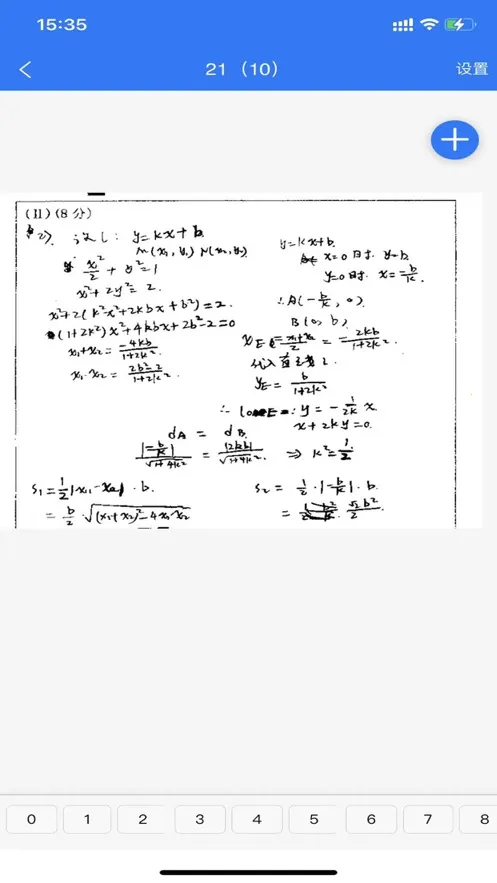 15:35
21（10）
设置
(II)(8分)
(2) 设l: y=kx+b.
M(x₁,y₁) N(x₂,y₂)
x²/2 + y²=1
x²+2y²=2.
x²+2(k²x²+2kbx+b²)=2.
(1+2k²)x²+4kbx+2b²-2=0
x₁+x₂ = -4kb/1+2k².
x₁·x₂ = 2b²-2/1+2k².
y=kx+b.
x=0时. y=b
y=0时. x=-b/k.
∴A(-b/k, 0).
B(0, b)
x_E = x₁+x₂/2 = -2kb/1+2k².
代入直线l.
y_E = b/1+2k²
∴ l_OE: y = -1/2k x.
x+2ky=0.
d_A = d_B.
|-b/k|/√1+4k² = |2kb|/√1+4k² ⇒ k²=1/2
S₁=1/2|x₁-x₂|·b.
= b/2·√(x₁+x₂)²-4x₁x₂
S₂ = 1/2·|-b/k|·b.
= √2b²/2
0 1 2 3 4 5 6 7 8